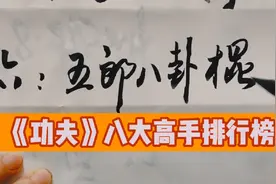 六：五郎八卦棍
《功夫》八大高手排行榜